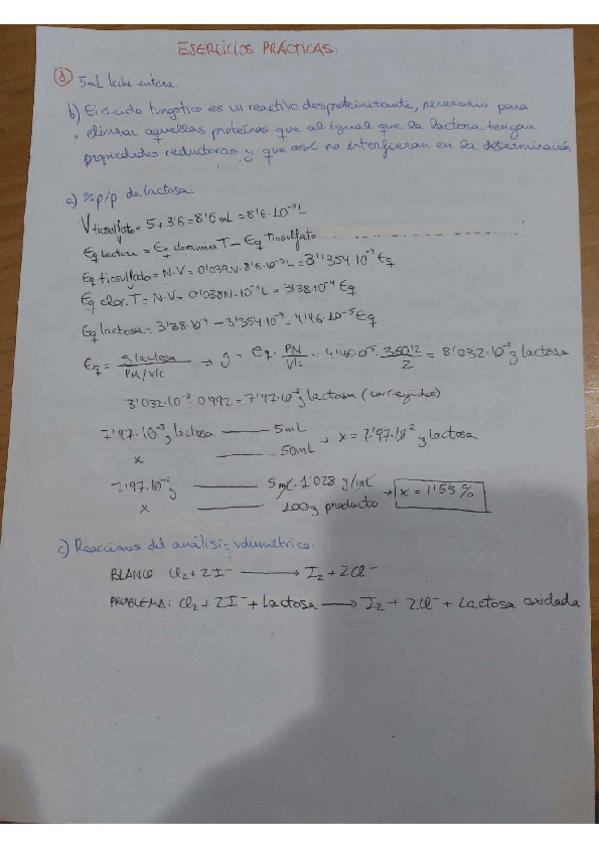 EJERCICIOS PRÁCTICAS:
① 5mL leche entera.
b) El ácido tungstico es un reactivo desproteinizante, necesario para
eliminar aquellas proteínas que al igual que la lactosa tengan
propiedades reductoras y que así no interfieran en la determinación
a) % p/p de lactosa:
V tiosulfato = 5 + 3'6 = 8'6 mL = 8'6·10⁻³L
Eq lactosa = Eq cloramina T - Eq tiosulfato
Eq tiosulfato = N·V = 0'039N·8'6·10⁻³L = 3'354·10⁻⁴ Eq
Eq clor. T = N·V = 10⁻³L = 3'38·10⁻⁴ Eq
Eq lactosa = 3'38·10⁻⁴ - 3'354·10⁻⁴ = 4'46·10⁻⁵ Eq
Eq = g lactosa / PM/v/c → g = eq · PM / v/c = 4'46·10⁻⁵ · 360'2 / 2 = 8'032·10⁻³ g lactosa
8'032·10⁻³ · 0'992 = 7'97·10⁻³ g lactosa (corregidos)
7'97·10⁻³ g lactosa —— 5mL
x —— 50mL → x = 7'97·10⁻² g lactosa
7'97·10⁻² g —— 5mL · 1'028 g/mL
x —— 100g producto → x = 1'55 %
c) Reacciones del análisis volumétrico:
BLANCO: Cl₂ + 2I⁻ → I₂ + 2Cl⁻
PROBLEMA: Cl₂ + 2I⁻ + Lactosa → I₂ + 2Cl⁻ + Lactosa oxidada